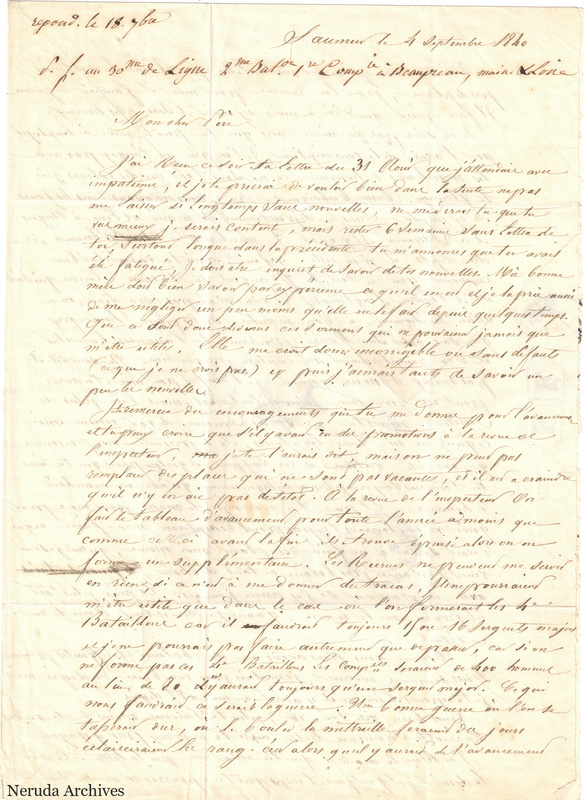 repond. le 18. 7bre
Saumur le 4 Septembre 1840
S. f. au 30me de Ligne 2me Baton 1re Compie à Beaupreau, maine & Loire
Mon cher Père
J'ai Reçu ce soir ta lettre du 31 Août que j'attendais avec
impatience, et je te prierai de vouloir bien dans la suite ne pas
me laisser si longtemps sans nouvelles, ne m'écrais tu que tu
vas mieux je serais content, mais rester 6 semaines sans lettre de
toi, surtout lorsque dans la précédente tu m'annonces que tu avais
été fatigué, je dois être inquiet de savoir de tes nouvelles. Ma bonne
mère doit bien savoir par expérience ce qu'il en est et je la prie aussi
de me négliger un peu moins qu'elle ne le fait depuis quelques temps.
Que ce sont donc devenus ces sermons qui ne pouvaient jamais que
m'être utiles, Elle me croit donc incorrigible ou sans défauts
(ce que je ne crois pas) et puis j'aimais tant de savoir un
peu les nouvelles.
Je te remercie des encouragements que tu me donne pour l'avancement
et tu peux croire que s'il y avait eu des promotions à la revue de
l'inspecteur, je te l'aurais dit, mais on ne peut pas
remplacer des places qui ne sont pas vacantes, et il est a craindre
qu'il n'y en aie pas de sitôt. À la revue de l'inspecteur On
fait le tableau d'avancement pour toute l'année à moins que
comme celle ci avant la fin il se trouve épuisé alors on en
forme un supplémentaire. Les Recrues ne peuvent me servir
en rien, si ce n'est à me donner du tracas, Ils ne pourraient
m'être utile que dans le cas où l'on formerait les 4e
Bataillons car il faudrait toujours 15 ou 16 Sergents majors
et je ne pourrais pas faire autrement que de passer, car si on
ne forme pas ces 4e Bataillons les Compies seraient de 400 hommes
au lieu de 80 il n'y aurait toujours qu'un sergent major. Ce qui
nous faudrait ce serait la guerre. Une bonne guerre où l'on se
taperait dur, où le boulet la mitraille feraient des jours
éclairciraient les rangs. Car alors qu'il y aurait de l'avancement
Neruda Archives